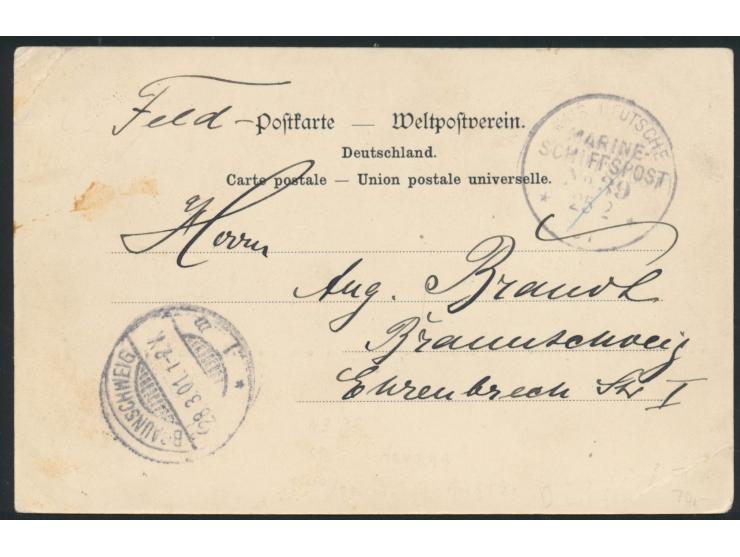 Feld-Postkarte — Weltpostverein.
Deutschland.
Carte postale — Union postale universelle.
DEUTSCHE
MARINE-
SCHIFFSPOST
No 39
25 2
Herrn
Aug. Brandt
Braunschweig
Ehrenbrech Str I
BRAUNSCHWEIG
28.3.01.1-2 V.
* 1 m
70,-